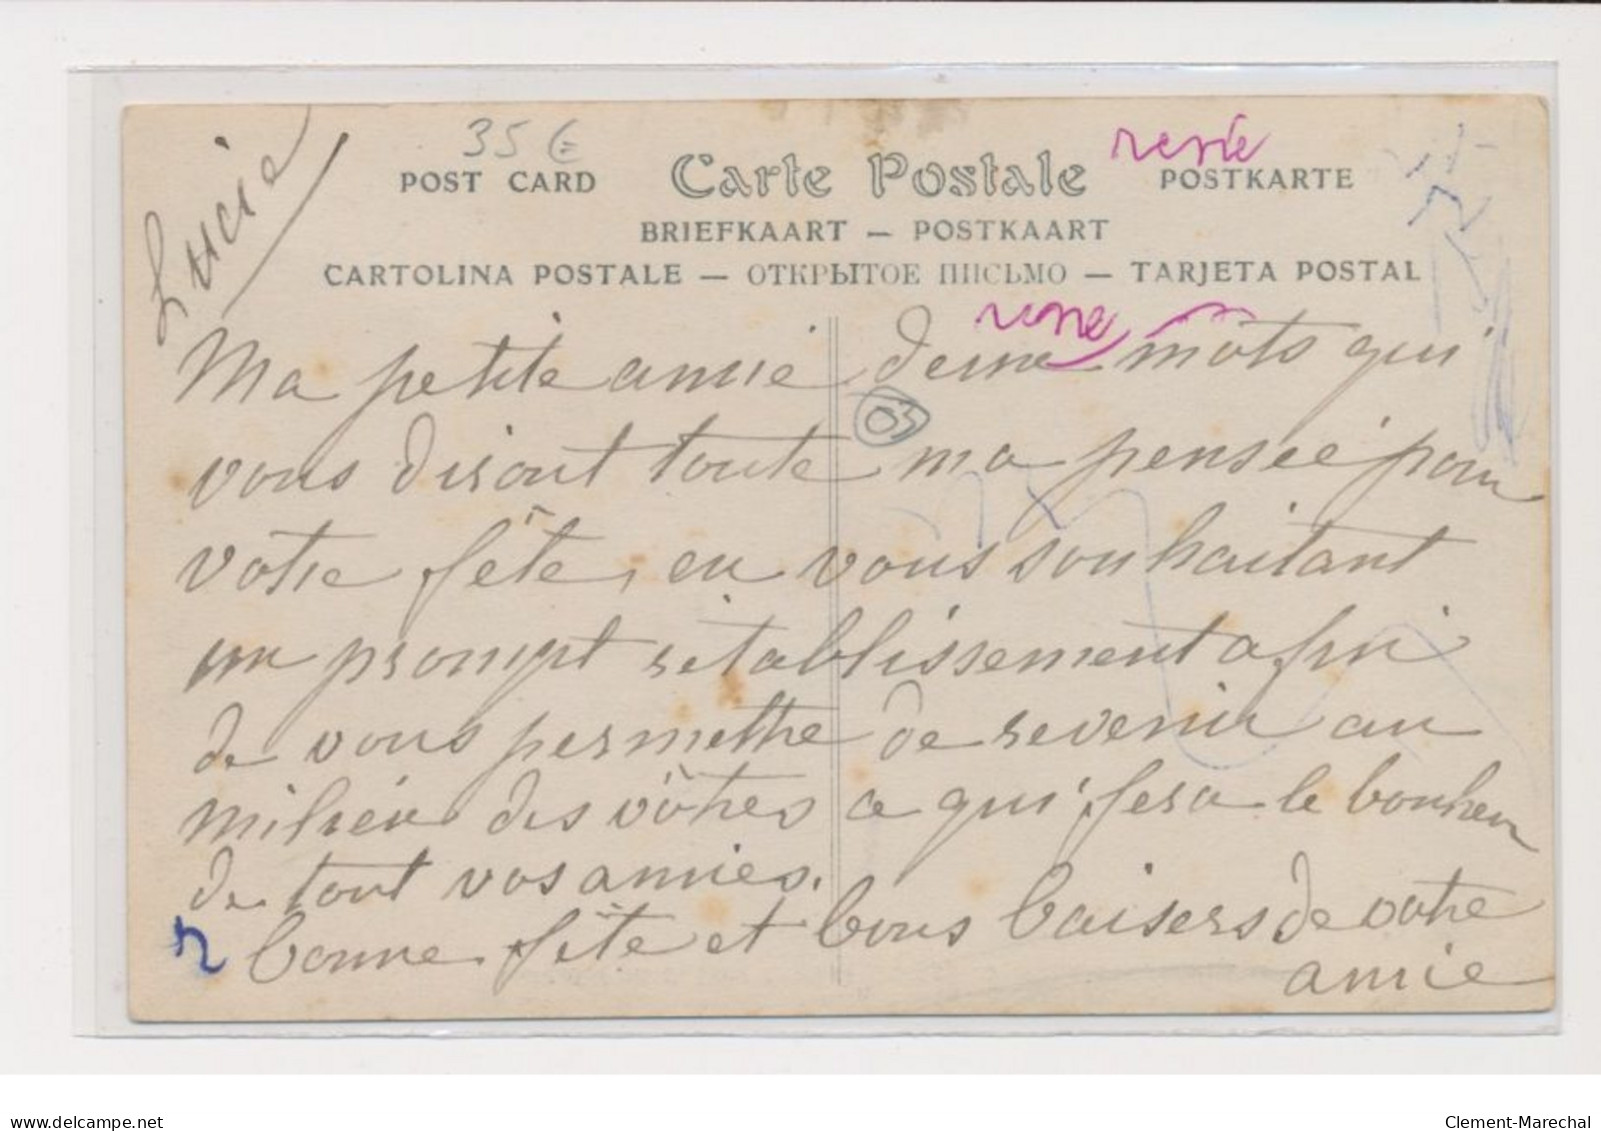 35 €
POST CARD Carte Postale POSTKARTE
BRIEFKAART — POSTKAART
CARTOLINA POSTALE — ОТКРЫТОЕ ПИСЬМО — TARJETA POSTAL
Lucie
Ma petite amie deux mots qui
03
vous diront toute ma pensée pour
votre fête, en vous souhaitant
un prompt rétablissement afin
de vous permettre de revenir au
milieu des vôtres ce qui fera le bonheur
de tout vos amies.
bonne fête et bons baisers de votre
amie
www.delcampe.net
Clement-Marechal